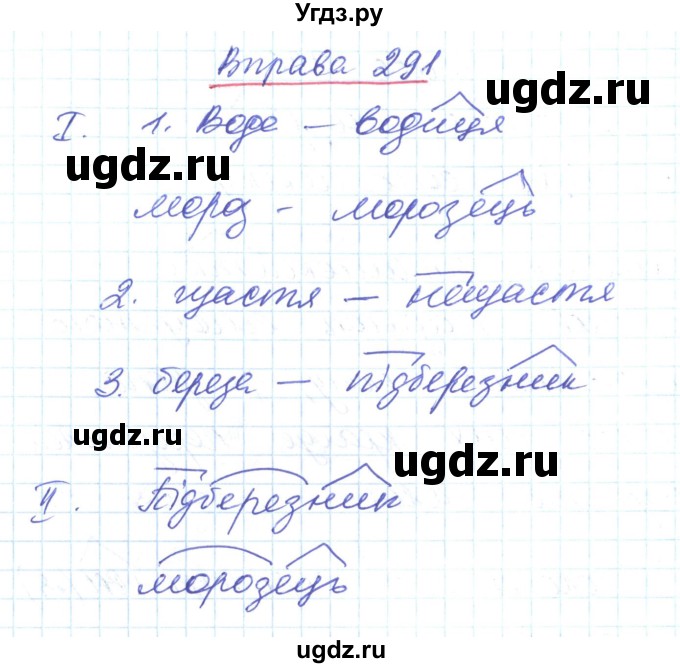 Угдз.ру
Вправа 291
ugdz.ru
I. 1. Вода – водиця
ugdz.ru
мороз - морозець
2. щастя – нещастя
3. береза – підберезник
ugdz.ru
ugdz.ru
II. Підберезник
ugdz.ru
морозець
ugdz.ru